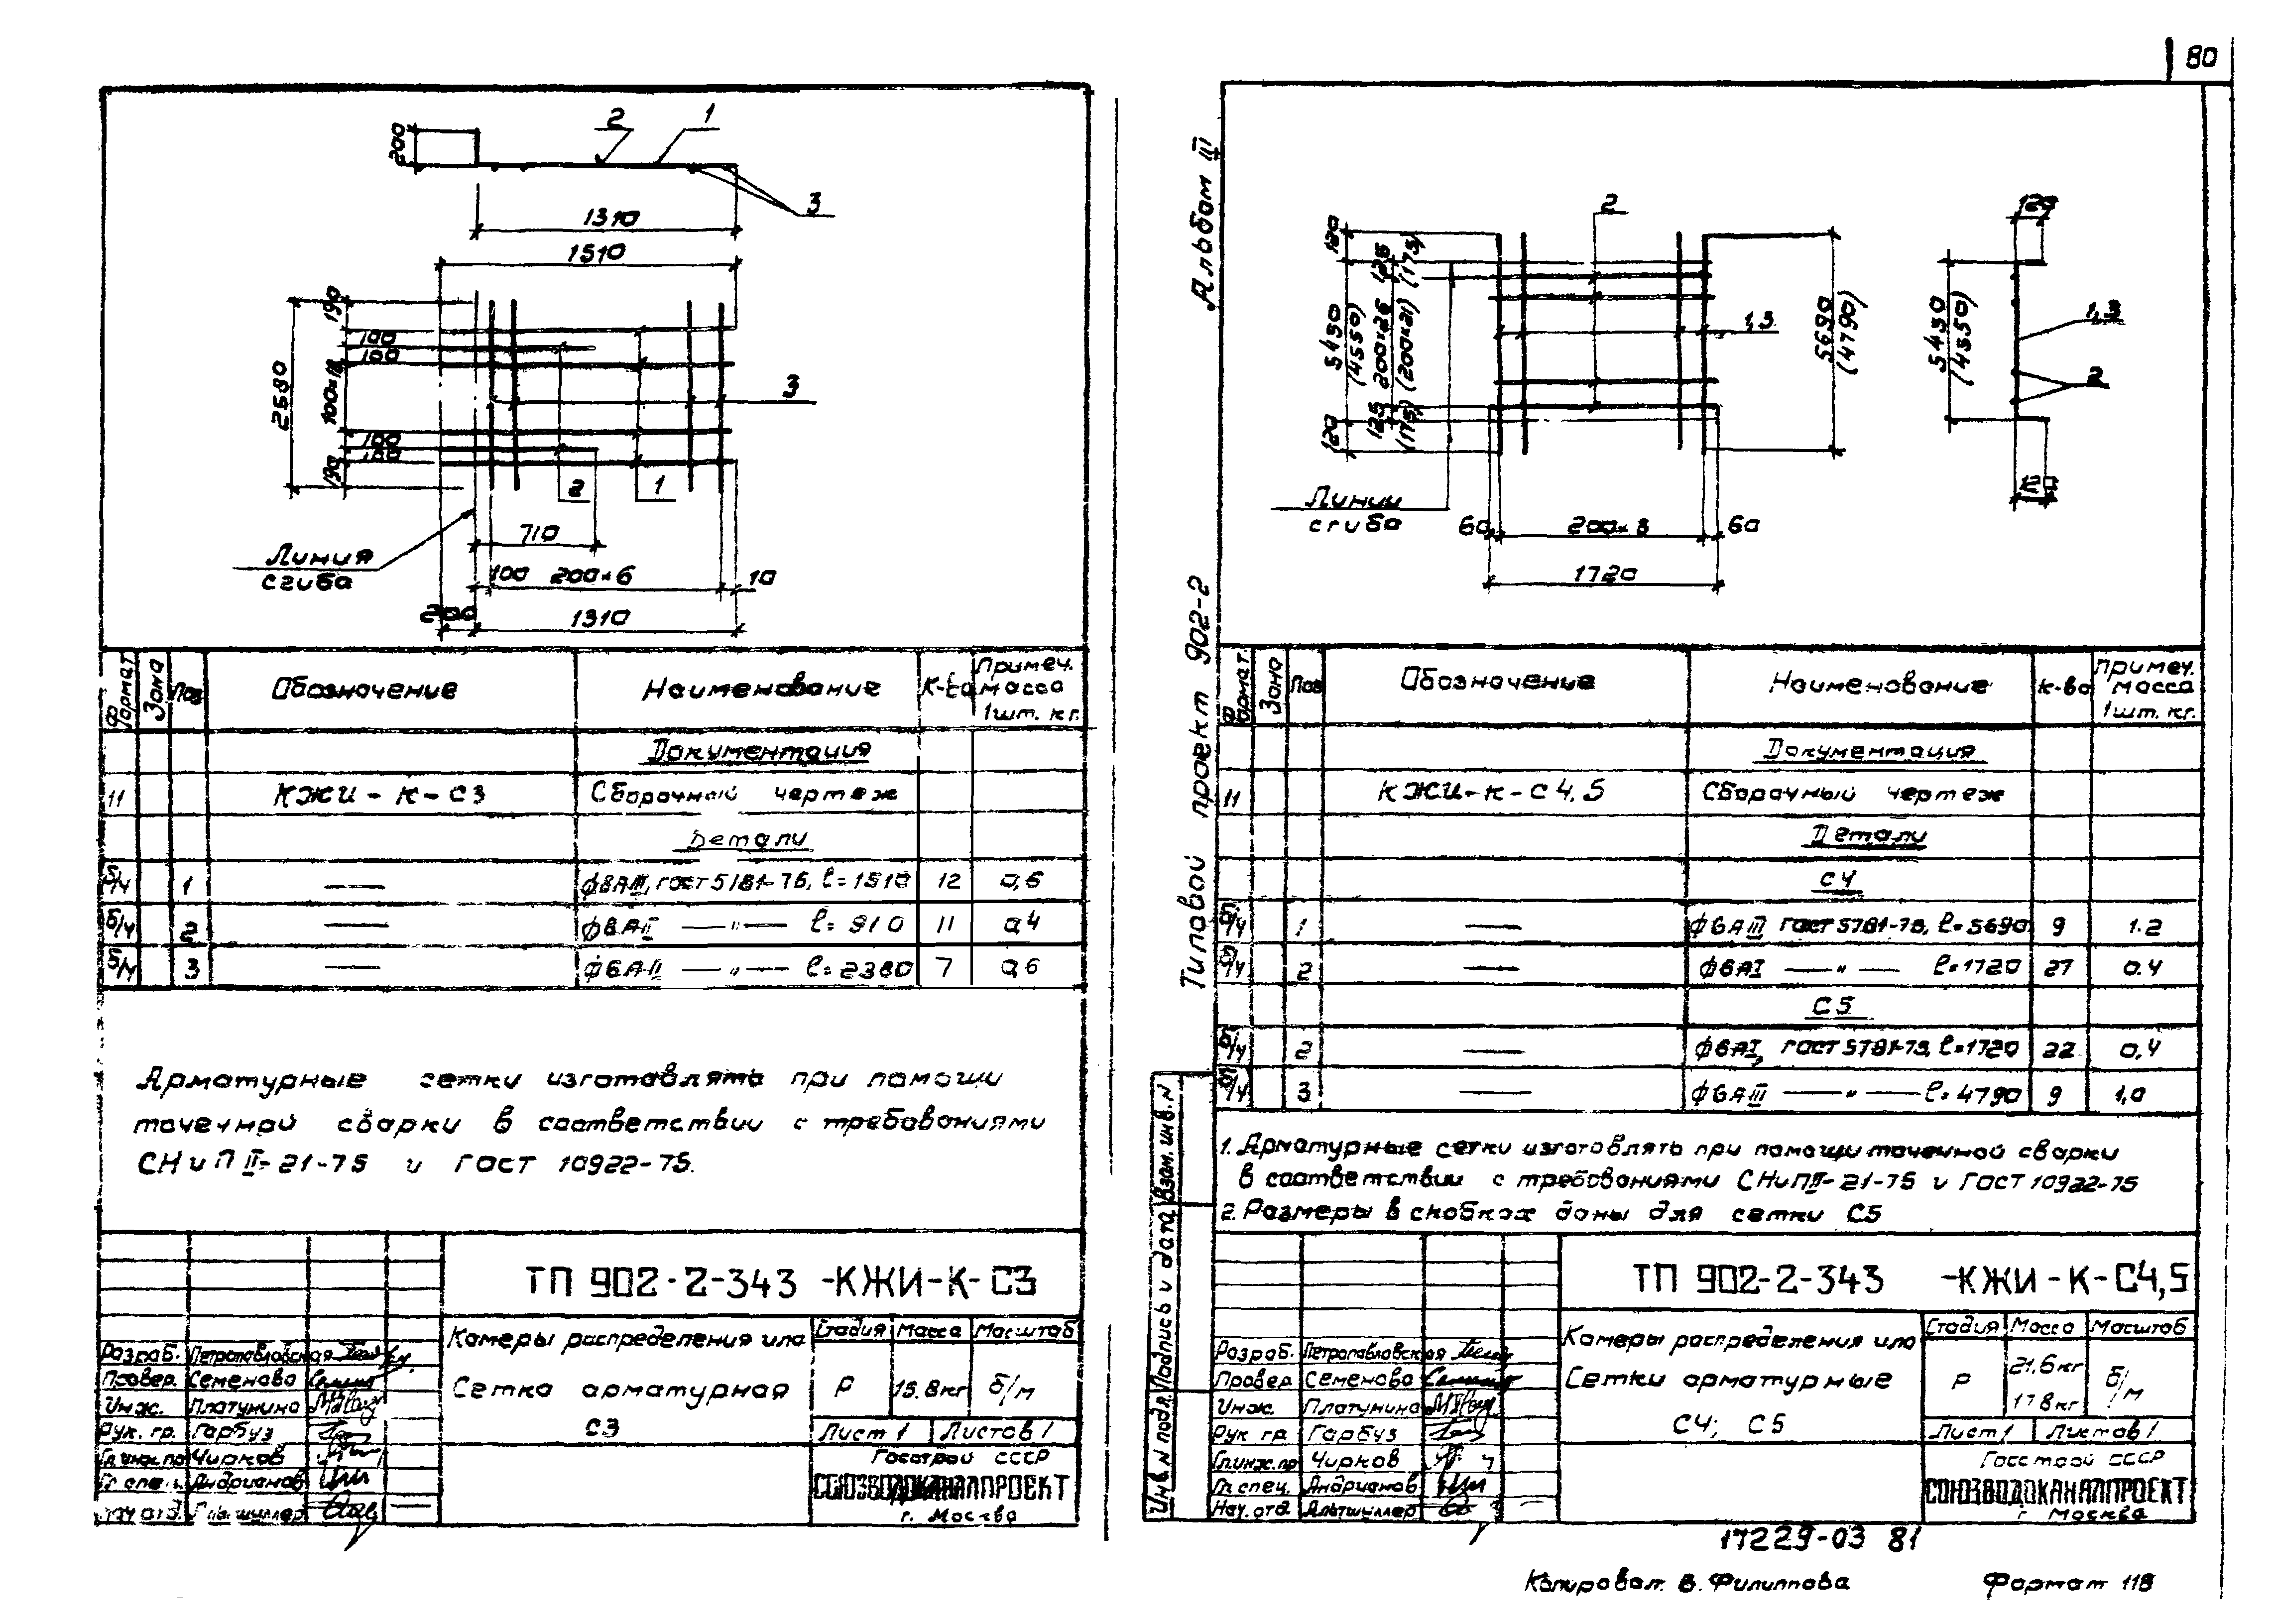 80
Альбом III
Типовой проект 902-2
200
2
1
3
1310
1510
190
100
100
100×18
2580
100
100
190
3
2
1
710
Линия
сгиба
100 200×6 10
200 1310
Формат Зона Поз Обозначение Наименование К-во Примеч. масса 1шт. кг.
Документация
11 КЖИ-К-С3 Сборочный чертеж
Детали
б/ч 1 — ф8АIII, ГОСТ 5781-75, ℓ=1510 12 0,6
б/ч 2 — ф8АIII —"— ℓ=910 11 0,4
б/ч 3 — —"— 7 0,6
Арматурные сетки изготовлять при помощи
точечной сварки в соответствии с требованиями
СНиП II-21-75 и ГОСТ 10922-75.
ТП 902-2-343 -КЖИ-К-С3
Камеры распределения ила
Сетка арматурная
С3
Стадия Масса Масштаб
Р 15.8кг б/м
Лист 1 Листов 1
Госстрой СССР
СОЮЗВОДОКАНАЛПРОЕКТ
г. Москва
Разраб. Петропавловская
Провер. Семенова
Инж. Платунина
Рук. гр. Гарбуз
Гл.инж.пр Чирков
Гл спец. Андрианов
Нач отд. Альтшуллер
2
120
125
(175)
5450
(4550)
200×26
(200×21)
125
(175)
120
1,3
5690
(4790)
Линии
сгиба
60 200×8 60
1720
120
5450
(4550)
1,3
2
120
Формат. Зона Поз Обозначение Наименование к-во Примеч. масса 1шт. кг.
Документация
11 КЖИ-К-С4,5 Сборочный чертеж
Детали
С4
б/ч 1 — ф6АIII ГОСТ 5781-75, ℓ=5690 9 1.2
б/ч 2 — ф6АI —"— ℓ=1720 27 0.4
С5
б/ч 2 — ф6АI, ГОСТ 5781-75, ℓ=1720 22 0,4
б/ч 3 — ф6АIII —"— ℓ=4790 9 1,0
1. Арматурные сетки изготовлять при помощи точечной сварки
в соответствии с требованиями СНиП II-21-75 и ГОСТ 10922-75
2. Размеры в скобках даны для сетки С5
Инв. N подл. Подпись и дата Взам. инв. N
ТП 902-2-343 -КЖИ-К-С4,5
Камеры распределения ила
Сетки арматурные
С4; С5
Стадия Масса Масштаб
Р 21,6кг 17.8кг б/м
Лист 1 Листов 1
Госстрой СССР
СОЮЗВОДОКАНАЛПРОЕКТ
г Москва
Разраб. Петропавловская
Провер Семенова
Инж. Платунина
Рук гр Гарбуз
Гл.инж.пр Чирков
Гл спец. Андрианов
Нач. отд Альтшуллер
17229-03 81
Копировал. В. Филиппова Формат 11В